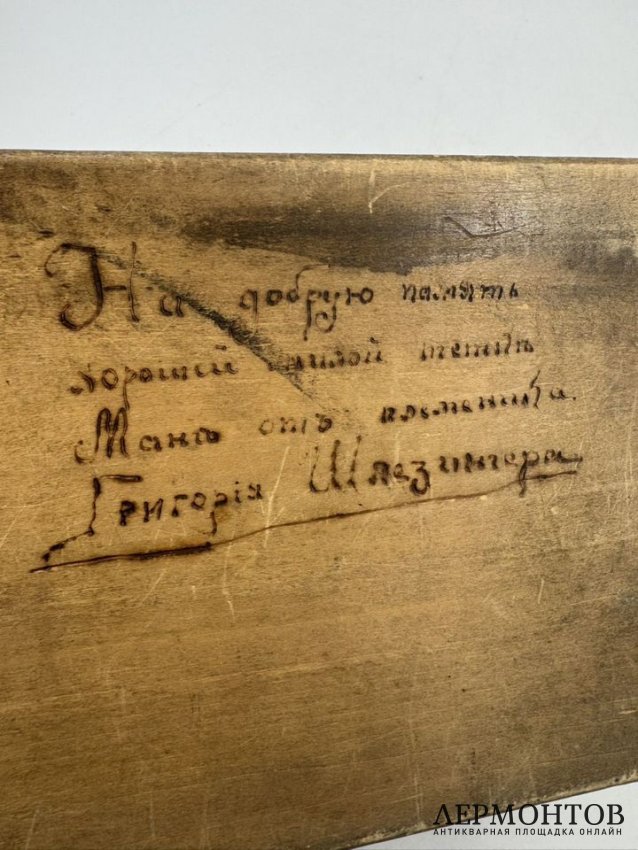 На добрую память
хорошей милой тетилѣ
Манѣ отъ племеника.
Григорія Шлезингера
ЛЕРМОНТОВ
АНТИКВАРНАЯ ПЛОЩАДКА ОНЛАЙН